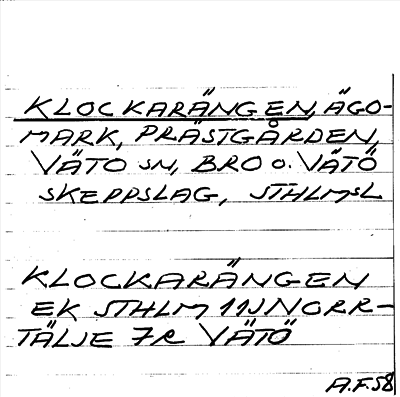 KLOCKARÄNGEN, ÄGO-
MARK, PRÄSTGÅRDEN,
VÄTÖ SN, BRO O. VÄTÖ
SKEPPSLAG, STHLMSL
KLOCKARÄNGEN
EK STHLM 11J NORR-
TÄLJE 7R VÄTÖ
A.F.58